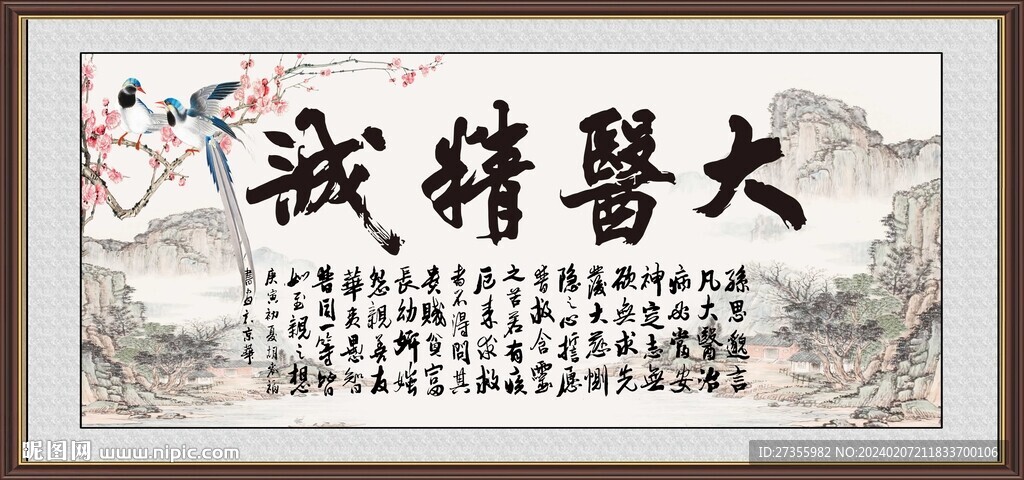 大醫精誠
孫思邈言
凡大醫治
病必當安
神定志無
欲無求先
發大慈惻
隱之心誓願
普救含靈
之苦若有疾
厄來求救
者不得問其
貴賤貧富
長幼妍媸
怨親善友
華夷愚智
普同一等皆
如至親之想
庚寅初夏胡
書京華
昵图网 www.nipic.com
ID:27355982 NO:20240207211833700106